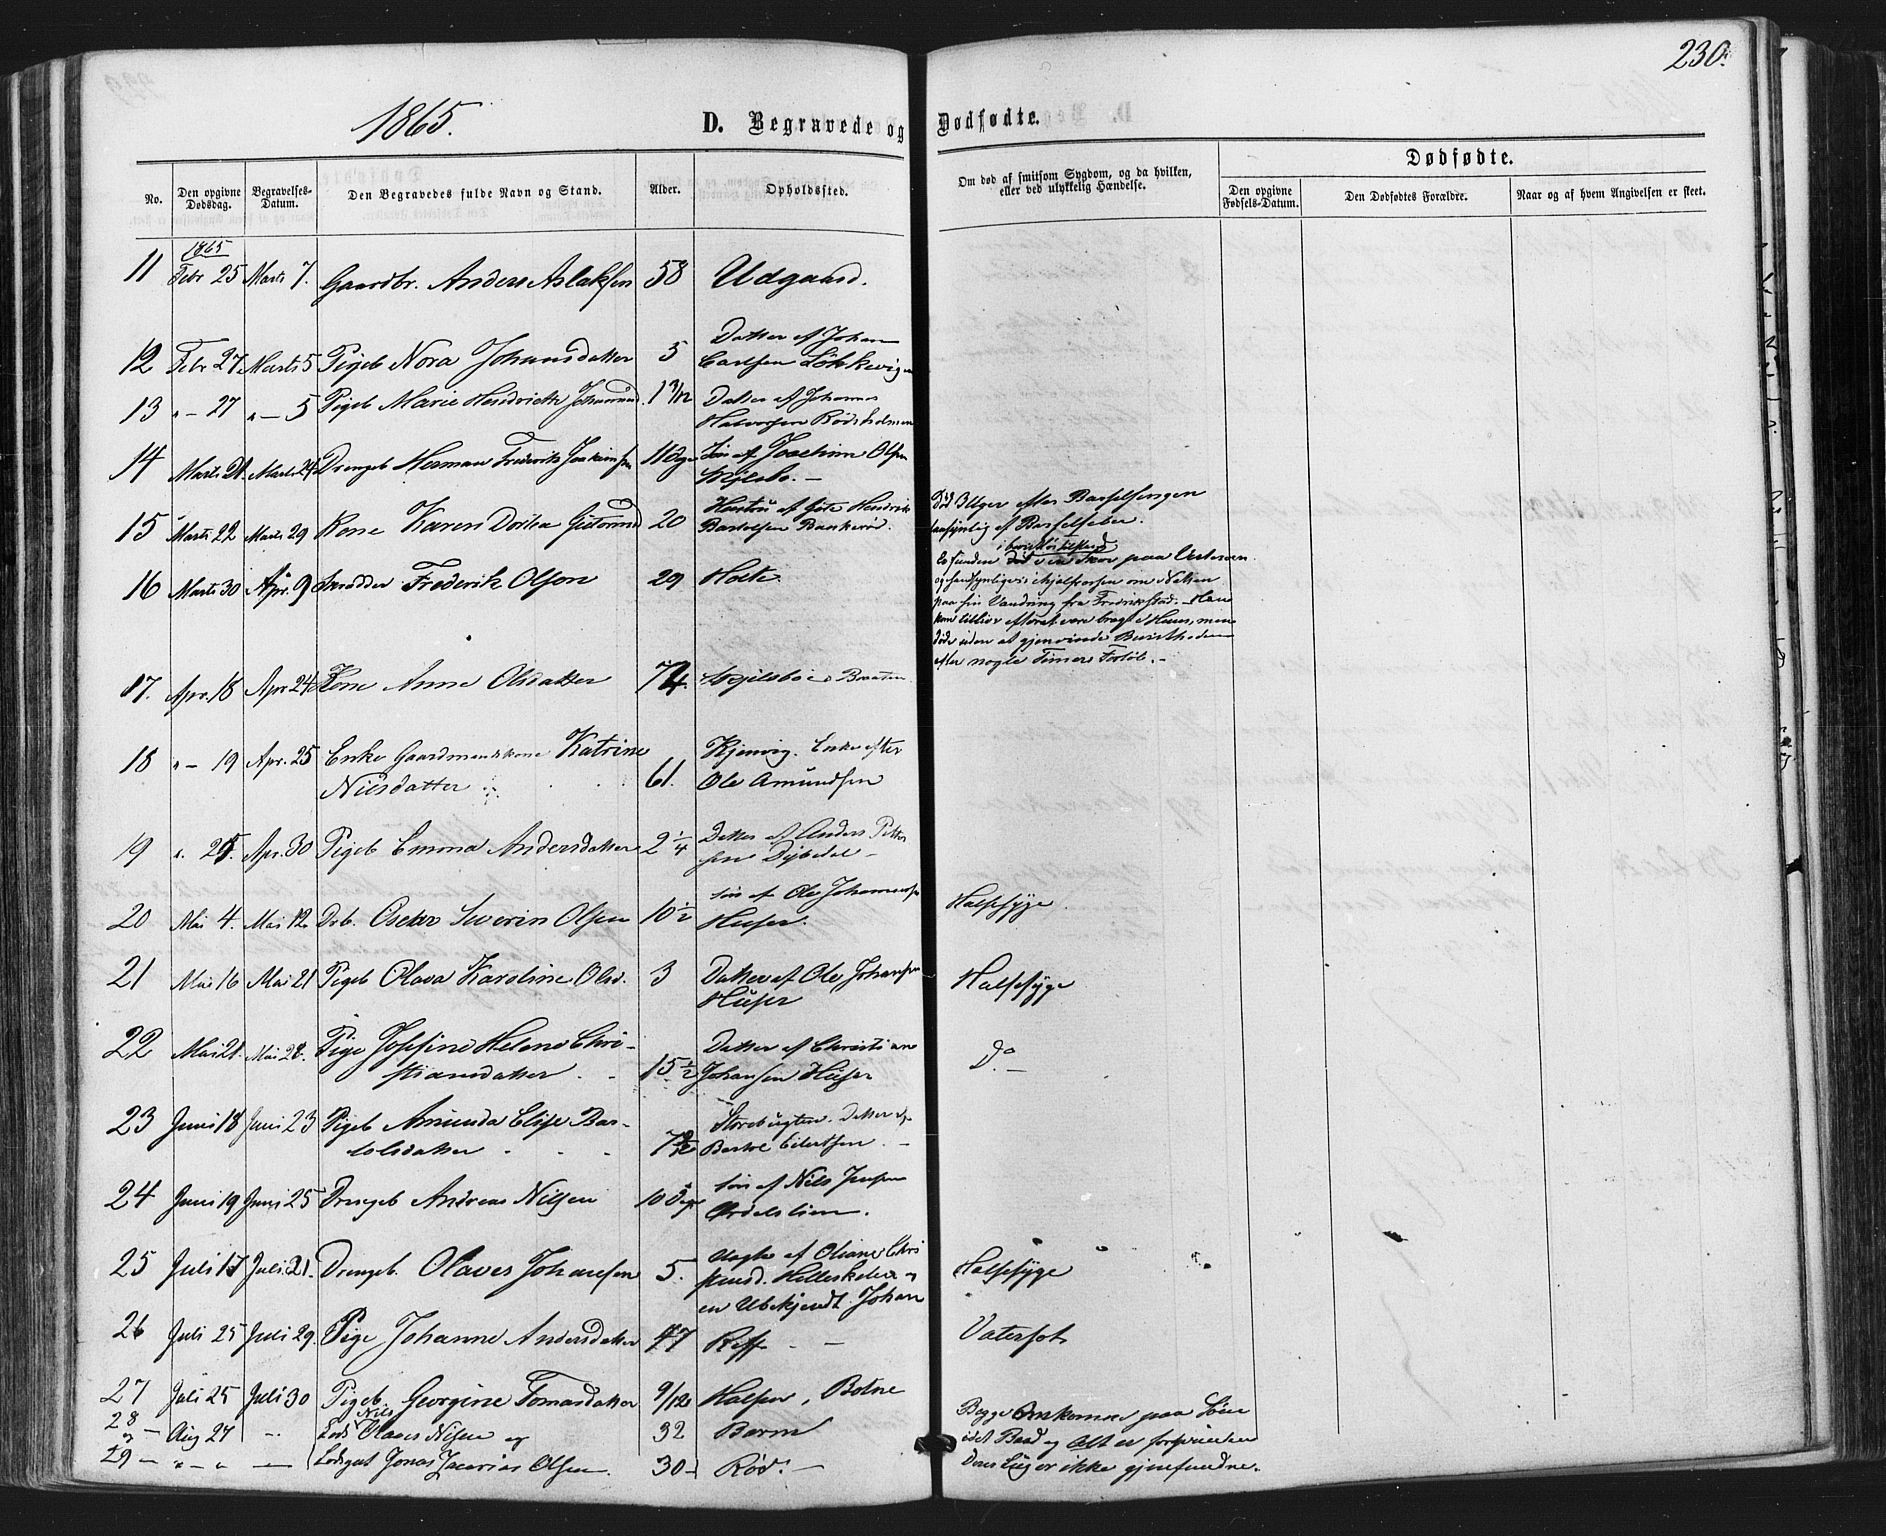 230.
1865.
D. Begravede og Dødfødte.
No.
Den opgivne Dødsdag.
Begravelses-Datum.
Den Begravedes fulde Navn og Stand.
Alder.
Opholdssted.
Om død af smitsom Sygdom, og da hvilken, eller ved ulykkelig Hændelse.
Dødfødte.
Den opgivne Fødsels-Datum.
Den Dødfødtes Forældre.
Naar og af hvem Angivelsen er skeet.
1865
11 Febr 25 Marts 7. Gaardbr. Anders Aslaksen 58 Udgaard.
12 Febr 27 Marts 5 Pigeb Nora Johansdatter 5 Datter af Johan
Carlsen Løkkevigen
13 " - 27 " - 5 Pigeb Marie Hendrikke Johannesd. 1 3/12 Datter af Johannes
Halvorsen Rødsholmen
14 Marts 21. Marts 24 Drengeb Herman Frederik Joakimsen 11 Dage Søn af Joachim Olsen
Vejlsbo. -
15 Marts 22 Marts 29 Kone Karen Dorthea Guttormsd 20 Hustru af Hendrik
Bartolsen Bankerød.
Død 3 Uger efter Barselsengen
sansynlig af Barselfeber.
16 Marts 30 Apr. 9 Skrædder Frederik Olsen 29 Holte
i bevidstløs tilstand
Efunden ved en Skov paa Vesterøen
og sandsynligvis ihjelfrossen om Natten
paa sin Vandring fra Fredrikstad. - Han
kom tillive efterat være bragt i Huus, men
døde uden at gjenvinde Bevistheden
efter nogle Timers Forløb. -
17. Apr. 18 Apr 24 Kone Anne Olsdatter 74. Vejlsbo i Braaten
18 " - 19 Apr. 25 Enke Gaardmandskone Katrine
Nilsdatter 61. Kjenvig. Enke efter
Ole Amundsen
19 ". 25. Apr. 30 Pigeb Emma Andersdatter 2 1/4 Datter af Anders Petter
sen Dybedal -
20 Mai 4. Mai 12. Drb. Oscar Severin Olsen 10 1/2 Søn af Ole Johannesen
Huser. Halsesyge.
21 Mai 16 Mai 21 Pigeb Olava Karoline Olsd. 3 Datter af Ole Johansen
Huser Halsesyge
22 Mai 21. Mai 28. Pige Josefine Helene Chri-
stiansdatter 15 1/2 Datter af Christian
Johansen Huser Do. -
23 Juni 18 Juni 23 Pigeb Amunda Elise Bar-
tolsdatter Storebugten. Datter af
Bartol Eilertsen. -
24 Juni 19 Juni 25 Drengeb Andreas Nilsen 10 Dage Søn af Nils Jensen
Ordalslien.
25 Juli 17 Juli 21. Drengeb. Olaves Johansen 5. Uægte af Oliane Chri
stensd. Helleskilen og
en Ubekjendt Johan Halsesyge
26 Juli 25 Juli 29. Pige Johanne Andersdatter 47 Reff - - Vatersot
27 Juli 25 Juli 30 Pigeb Georgine Tomasdatter 9/12 Halsen, Botne
28 - Aug 27 -. Lods Nils Olaves Nilsen og 32 Barm
29 - " - " - Lodsgut Jonas Zacarias Olsen. 30 - Rød. -
Begge Omkomne paa Søen
idet Baad og Alt er forsvunden
Deres Liig er ikke gjenfundne.